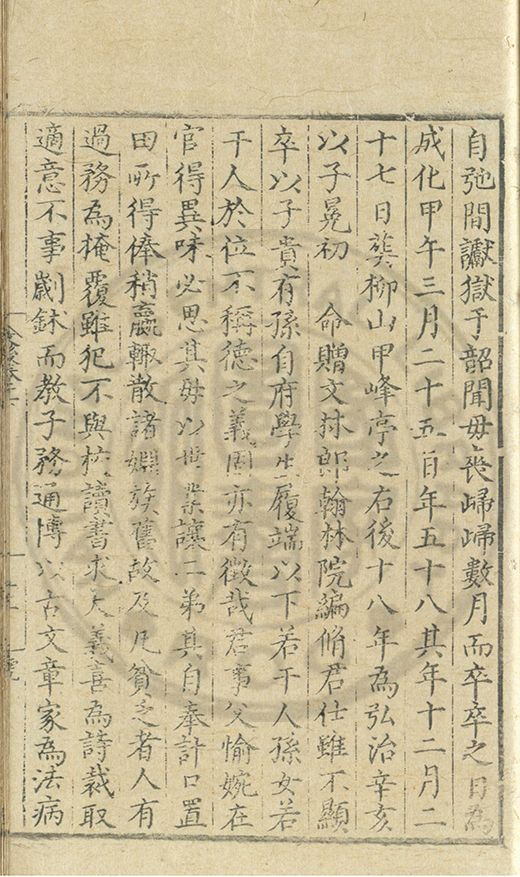 自弛間讞獄于韶聞毋喪歸歸數月而卒卒之日為
成化甲午三月二十五日年五十八其年十二月二
十七日葬柳山甲峰亭之右後十八年為弘治辛亥
以子冕初　命贈文林郎翰林院編脩君仕雖不顯
卒以子貴有孫自府學生履端以下若干人孫女若
干人於位不稱德之義固亦有徴哉君事父愉婉在
官得異味必思其毋以世業讓二弟其自奉計口置
田所得俸稍贏輙散諸婣族舊故及凡貧乏者人有
過務為掩覆雖犯不與校讀書求大義喜為詩裁取
適意不事劌鉥而教子務通博以古文章家為法病